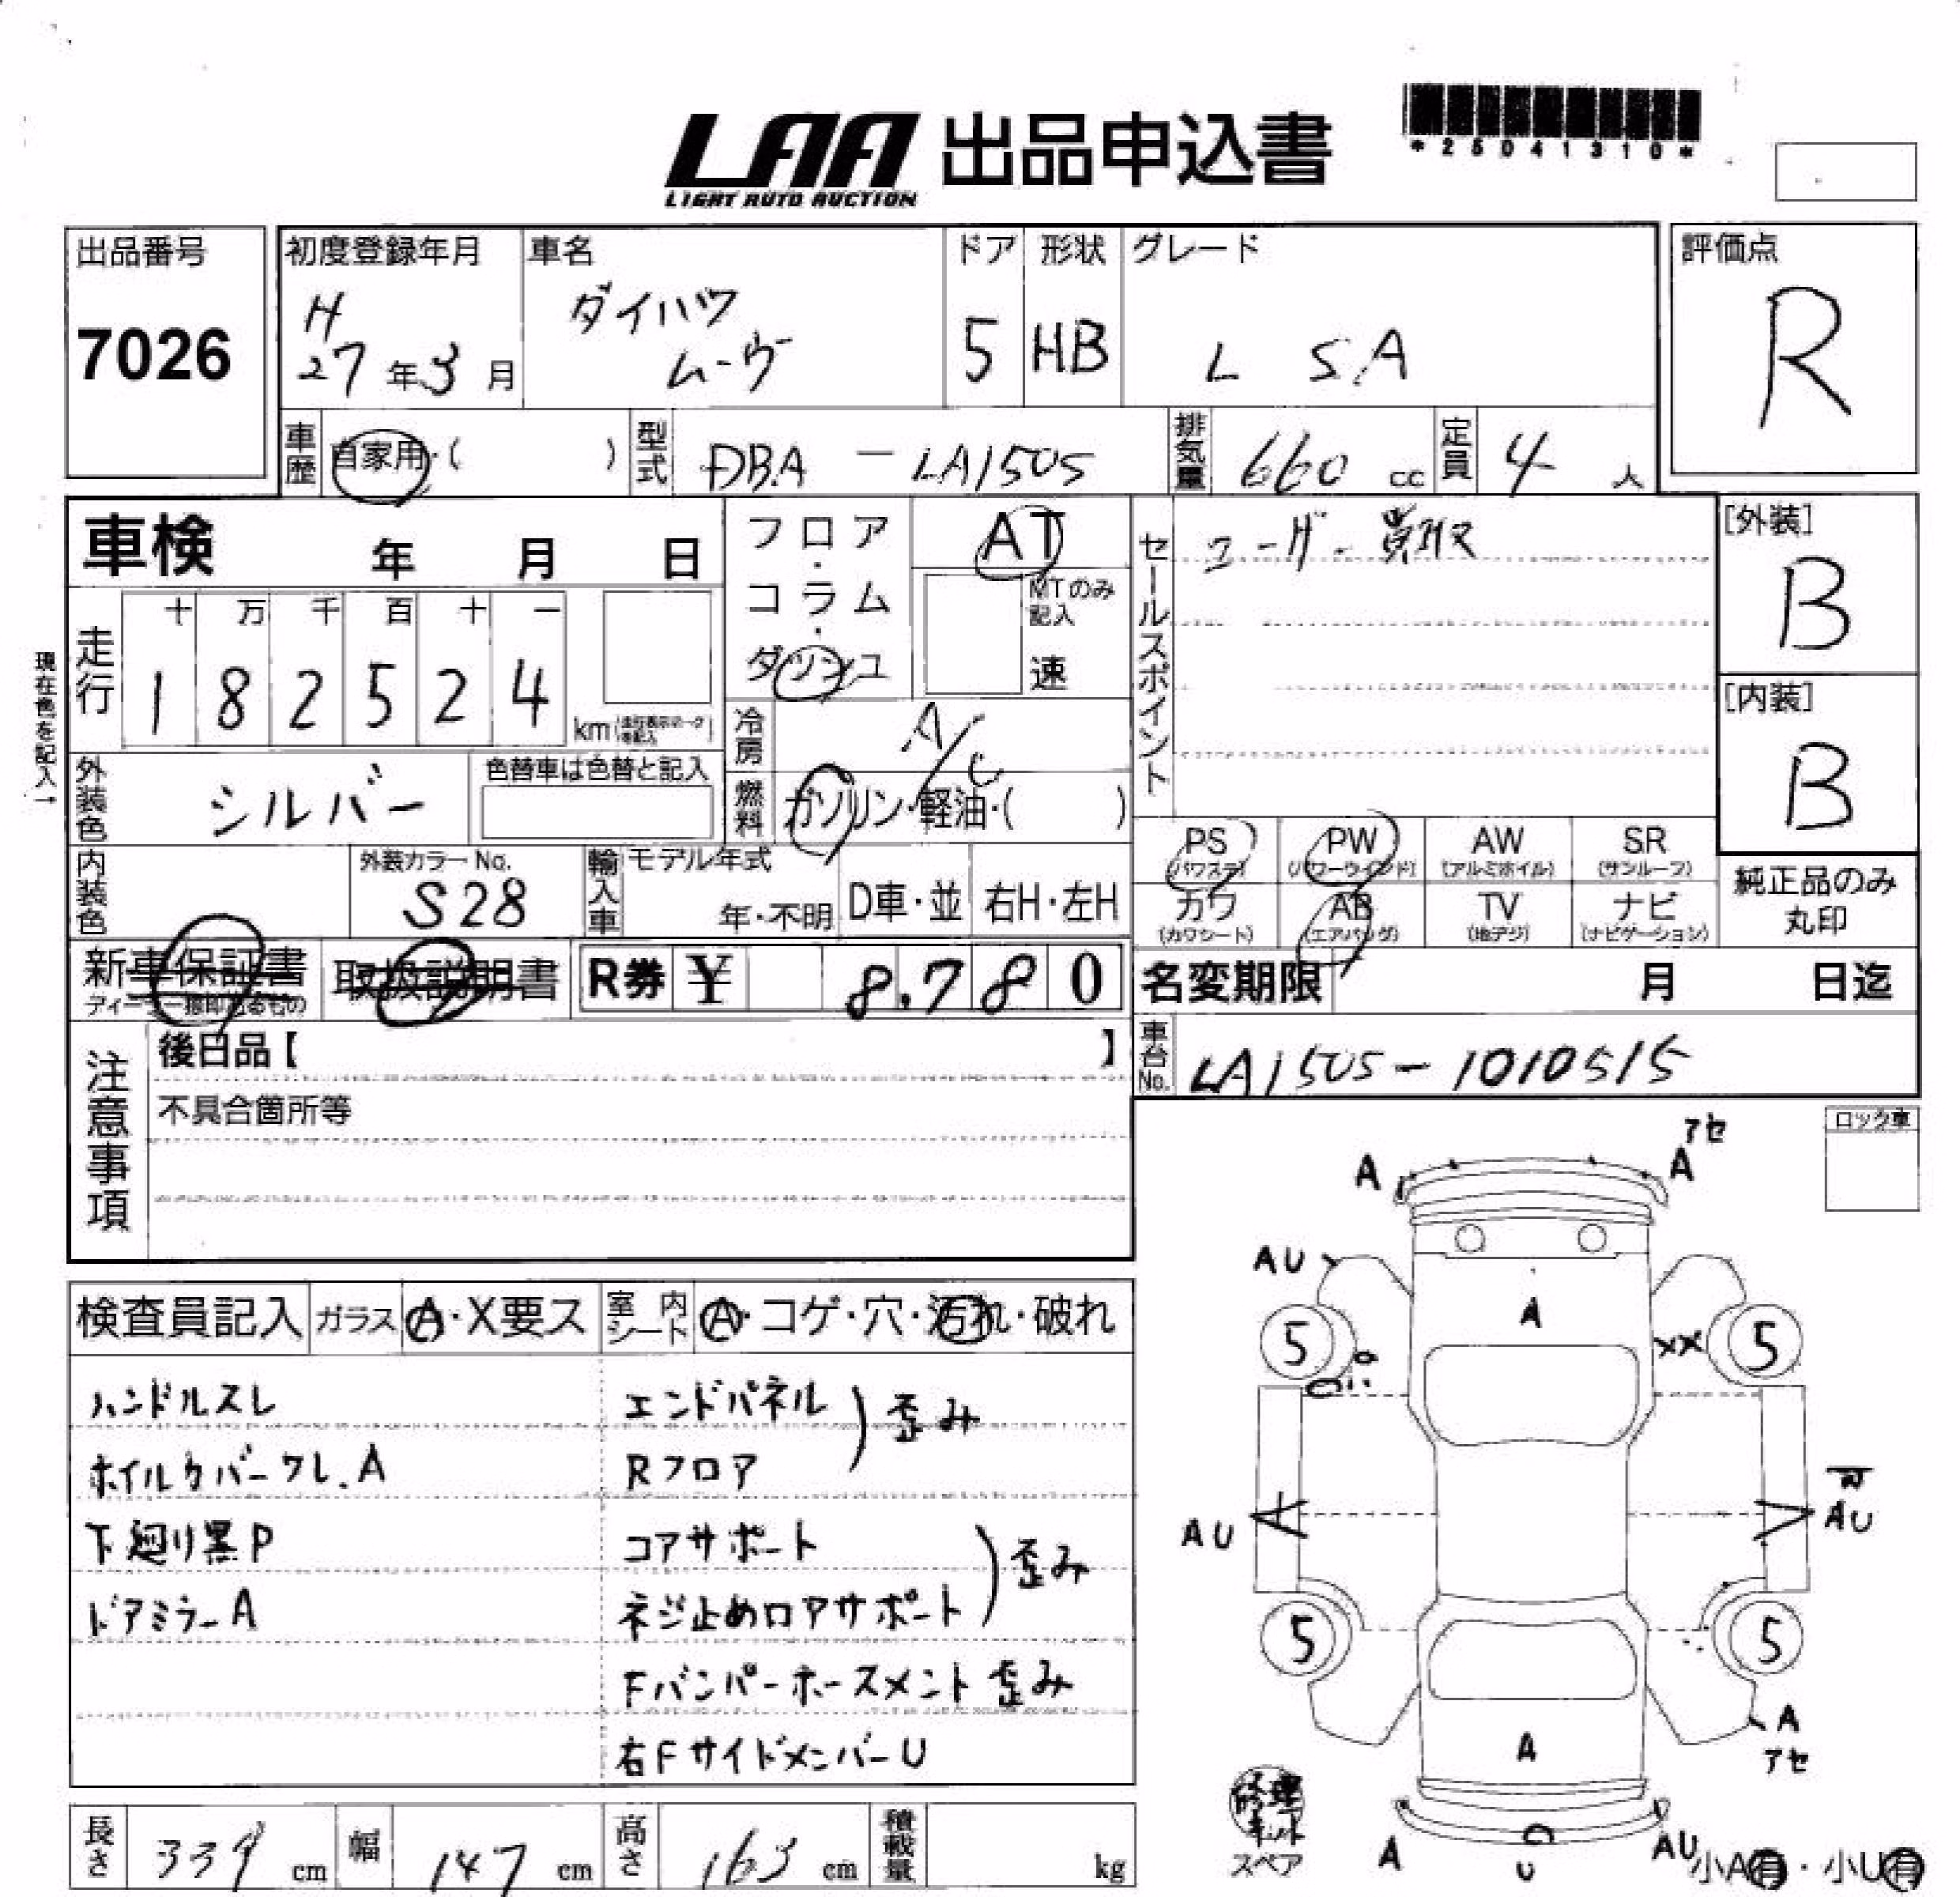 LAA 出品申込書
LIGHT AUTO AUCTION
*25041310*
出品番号
7026
初度登録年月
H
27年3月
車名
ダイハツ
ムーヴ
ドア
5
形状
HB
グレード
L SA
評価点
R
車歴
自家用・( )
型式
DBA - LA150S
排気量
660 cc
定員
4 人
車検 年 月 日
現在色を記入→
走行
十 万 千 百 十 一
1 8 2 5 2 4
km
フロア
・
コラム
・
ダッシュ
AT
MTのみ
記入
速
冷房
A/C
燃料
ガソリン・軽油・( )
セールスポイント
ユーザー買取
[外装]
B
[内装]
B
外装色
シルバー
色替車は色替と記入
内装色
外装カラーNo.
S28
輸入車
モデル年式
年・不明
D車・並
右H・左H
PS
(パワステ)
PW
(パワーウインド)
AW
(アルミホイル)
SR
(サンルーフ)
カワ
(カワシート)
AB
(エアバッグ)
TV
(地デジ)
ナビ
(ナビゲーション)
純正品のみ
丸印
新車保証書
取扱説明書
R券 ¥ 8.780
名変期限 月 日迄
車台No.
LA150S-1010515
注意事項
後日品【 】
不具合箇所等
ロック車
検査員記入
ガラス
A・X要ス
室内
シート
A・コゲ・穴・汚れ・破れ
ハンドルスレ
ホイルカバーワレ.A
下廻り黒P
ドアミラーA
エンドパネル
Rフロア
歪み
コアサポート
ネジ止めロアサポート
歪み
Fバンパーホースメント 歪み
右FサイドメンバーU
アセ
A
A
AU
A
5
XX
5
AU
W
AU
5
5
A
アセ
A
修理
キット
スペア
A
U
AU
小A有・小U有
長さ
339 cm
幅
147 cm
高さ
163 cm
積載量
kg